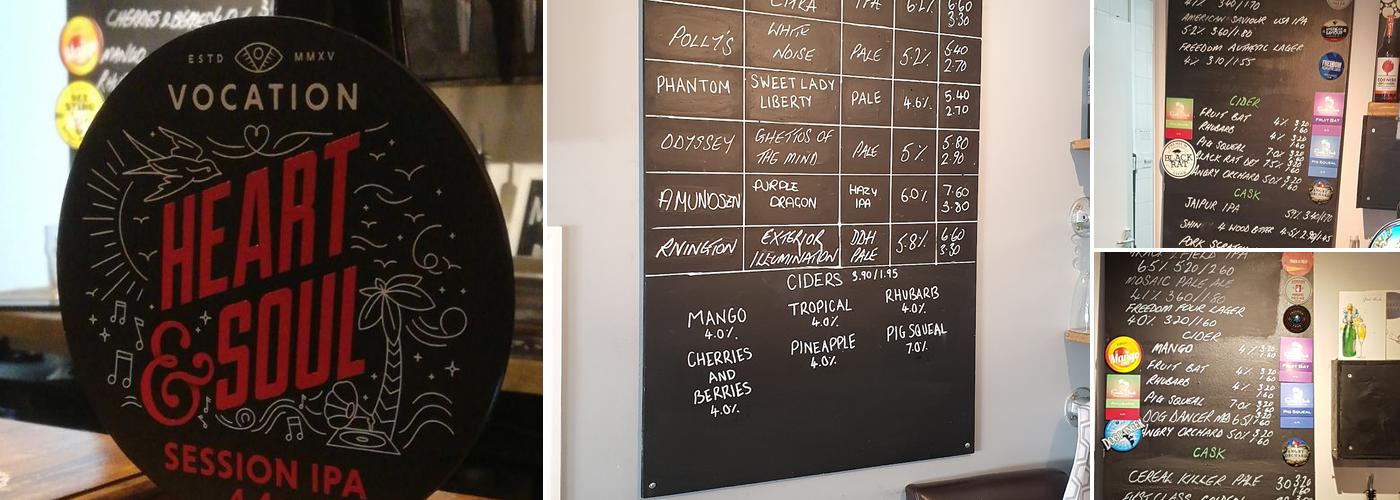 CHERRIES
MANGO
Mango
ESTD MMXV
VOCATION
HEART
& SOUL
SESSION IPA
4.4
CITRA IPA 6.2% 6.60
3.30
POLLY'S WHITE NOISE PALE 5.2% 5.40
2.70
PHANTOM SWEET LADY LIBERTY PALE 4.6% 5.40
2.70
ODYSSEY GHETTOS OF THE MIND PALE 5% 5.80
2.90
AMUNDSEN PURPLE DRAGON HAZY IPA 6.0% 7.60
3.80
RIVINGTON EXTERIOR ILLUMINATION DDH PALE 5.8% 6.60
3.30
CIDERS 3.90/1.95
MANGO
4.0%
TROPICAL
4.0%
RHUBARB
4.0%
CHERRIES
AND
BERRIES
4.0%
PINEAPPLE
4.0%
PIG SQUEAL
7.0%
4.1% 340/170
AMERICAN SAVIOUR USA IPA
5.2% 360/180
FREEDOM LAGER
4% 310/155
CIDER
FRUIT BAT 4% 3.20
1.60
RHUBARB 4% 3.20
1.60
PIG SQUEAL 7.0% 3.20
1.60
BLACK RAT DRY 7.5% 3.20
1.60
ANGRY ORCHARD 5.0% 3.20
1.60
FRUIT BAT
PIG SQUEAL
BLACK
RAT
CASK
JAIPUR IPA 5.9% 340/170
4 WOOD BITTER 4.5% 2.90/1.45
PORK
6.5% 520/260
MOSAIC PALE ALE
4.1% 360/180
FREEDOM FOUR LAGER
4.0% 320/160
CIDER
MANGO 4% 3.20
1.60
FRUIT BAT 4% 3.20
1.60
RHUBARB 4% 3.20
1.60
PIG SQUEAL 7.0% 3.20
1.60
DOG DANCER 6.5% 3.20
1.60
ANGRY ORCHARD 5.0% 3.20
1.60
Mango
FRUIT BAT
PIG SQUEAL
CASK
CEREAL KILLER PALE
FIRST CLASS